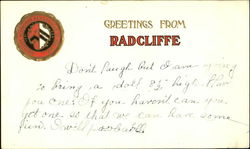 GREETINGS FROM
RADCLIFFE
Don't laugh but I am going
to bring a doll 8½" high. Have
you one. If you haven't can you
get one so that we can have some
fun. I will probably